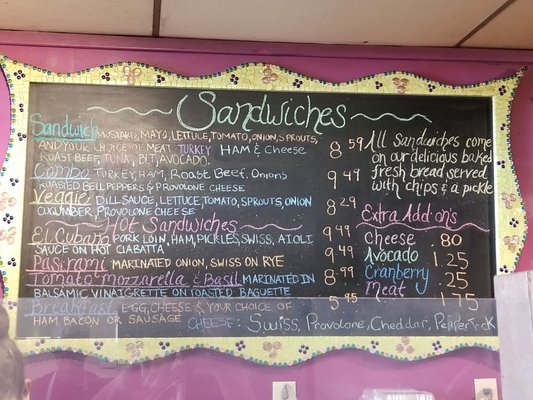 Sandwiches
Sandwich MUSTARD, MAYO, LETTUCE, TOMATO, ONIONS, SPROUTS,
AND YOUR CHOICE OF MEAT. TURKEY HAM & CHEESE 8 59
ROAST BEEF, TUNA, BLT, AVOCADO.
Combo TURKEY, HAM, ROAST BEEF, ONIONS 9 49
ROASTED BELL PEPPERS & PROVOLONE CHEESE
Veggie DILL SAUCE, LETTUCE, TOMATO, SPROUTS, ONION 8 29
CUCUMBER, PROVOLONE CHEESE
Hot Sandwiches
El Cubano PORK LOIN, HAM, PICKLES, SWISS, AIOLI 9 49
SAUCE ON HOT CIABATTA
Pastrami MARINATED ONION, SWISS ON RYE 9 49
Tomato Mozzarella & Basil MARINATED IN 8 99
BALSAMIC VINAIGRETTE ON TOASTED BAGUETTE
Breakfast EGG, CHEESE & YOUR CHOICE OF 5 95
HAM, BACON OR SAUSAGE
All Sandwiches come
on our delicious baked
fresh bread served
with chips & a pickle
Extra Add on's
Cheese .80
Avocado 1.25
Cranberry .25
Meat 1.75
CHEESE: Swiss, Provolone, Cheddar, PepperJack